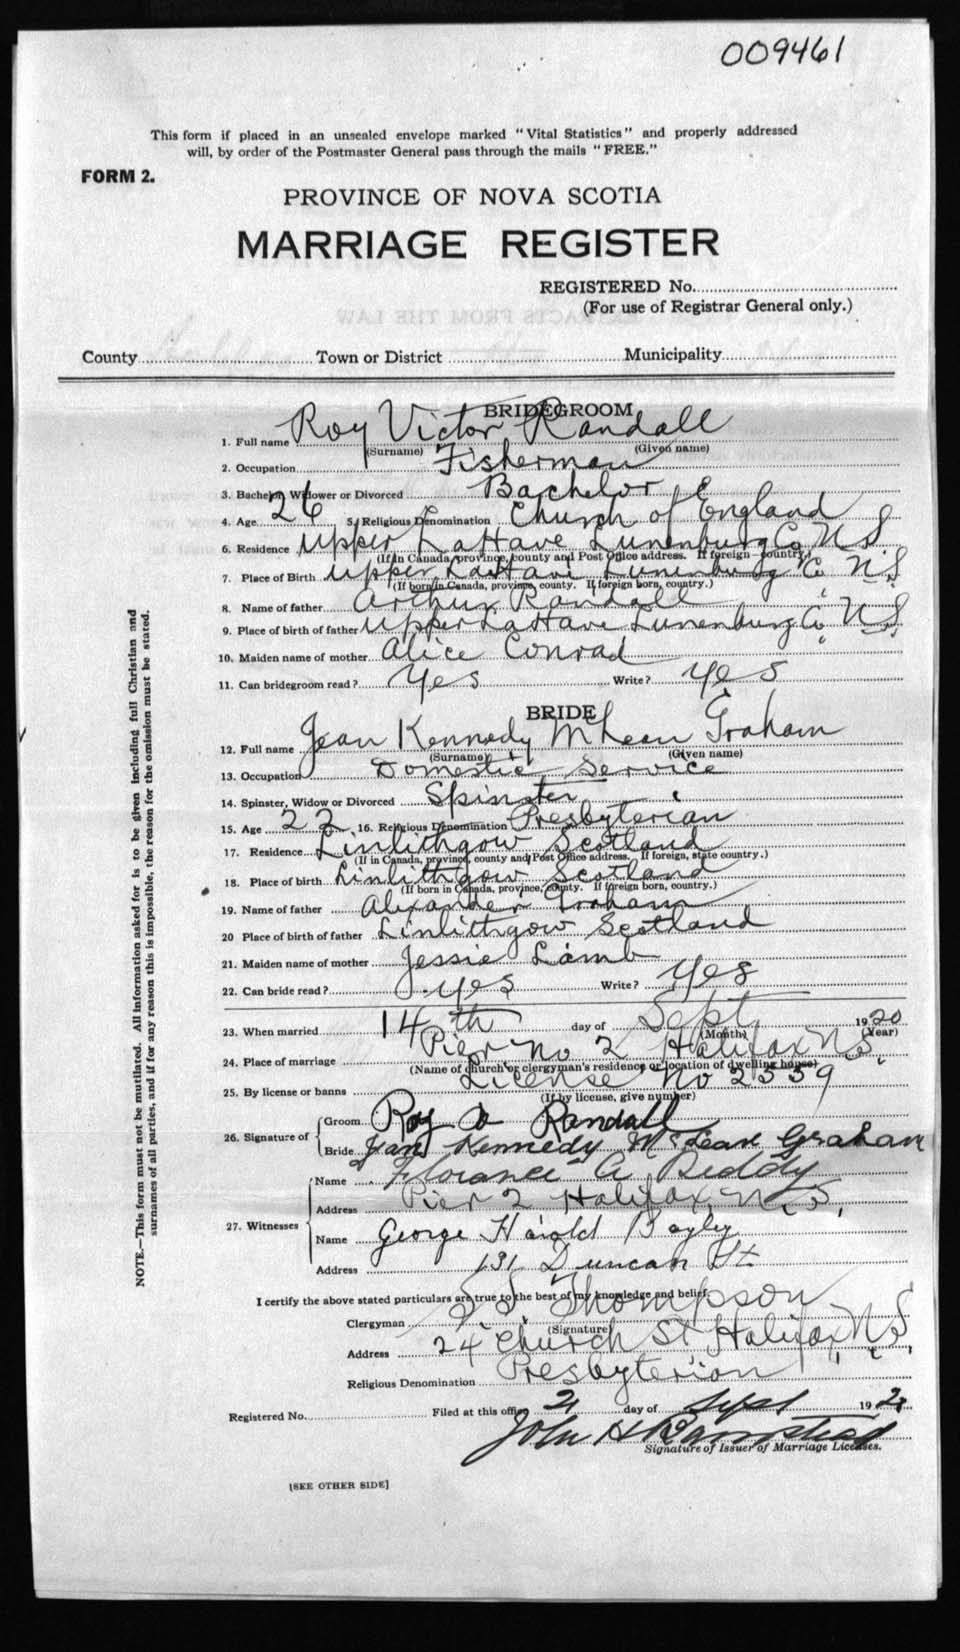 009461
This form if placed in an unsealed envelope marked "Vital Statistics" and properly addressed
will, by order of the Postmaster General pass through the mails "FREE."
FORM 2.
PROVINCE OF NOVA SCOTIA
MARRIAGE REGISTER
REGISTERED No.
(For use of Registrar General only.)
County Town or District Municipality
BRIDEGROOM
1. Full name Roy Victor Randall
(Surname) (Given name)
2. Occupation Fisherman
3. Bachelor, Widower or Divorced Bachelor
4. Age 26 5. Religious Denomination Church of England
6. Residence Upper LaHave Lunenburg Co N S
(If in Canada, province, county and Post Office address. If foreign country.)
7. Place of Birth Upper LaHave Lunenburg Co N.S.
(If born in Canada, province, county. If foreign born, country.)
8. Name of father Arthur Randall
9. Place of birth of father Upper LaHave Lunenburg Co N.S.
10. Maiden name of mother Alice Conrad
11. Can bridegroom read? Yes Write? Yes
BRIDE
12. Full name Jean Kennedy McLean Graham
(Surname) (Given name)
13. Occupation Domestic Service
14. Spinster, Widow or Divorced Spinster
15. Age 22 16. Religious Denomination Presbyterian
17. Residence Linlithgow Scotland
(If in Canada, province, county and Post Office address. If foreign, state country.)
18. Place of birth Linlithgow Scotland
(If born in Canada, province, county. If foreign born, country.)
19. Name of father Alexander Graham
20 Place of birth of father Linlithgow Scotland
21. Maiden name of mother Jessie Lamb
22. Can bride read? Yes Write? Yes
23. When married 14th day of Sept 1920
(Month) (Year)
24. Place of marriage Pier No 2 Halifax N.S.
(Name of church or clergyman's residence or location of dwelling house)
25. By license or banns License No 2559
(If by license, give number)
26. Signature of Groom Roy V Randall
Bride Jean Kennedy McLean Graham
27. Witnesses Name Florance A Beddy
Address Pier 2 Halifax, N.S.
Name George Harold Bayley
Address 131 Duncan St
I certify the above stated particulars are true to the best of my knowledge and belief.
Clergyman Thompson
(Signature)
Address 24 Church St Halifax N.S.
Religious Denomination Presbyterian
Registered No. Filed at this office 21 day of Sept 192
John H Barnstead
Signature of Issuer of Marriage Licenses.
[SEE OTHER SIDE]
NOTE.—This form must not be mutilated. All information asked for is to be given including full Christian and
surnames of all parties, and if for any reason this is impossible, the reason for the omission must be stated.